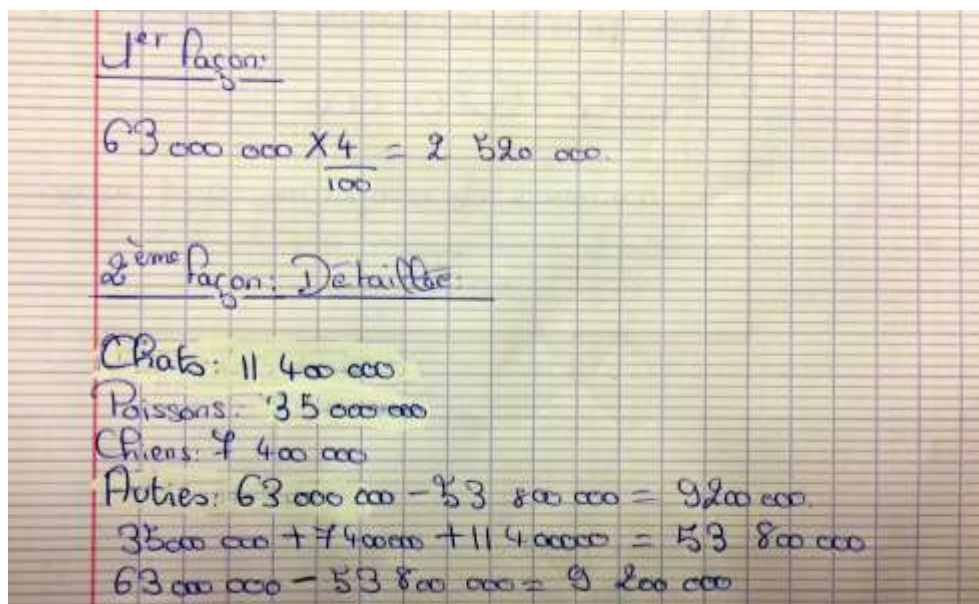 1er façon:
63 000 000 × 4/100 = 2 520 000.
2ème façon: Détaillée:
Chats: 11 400 000
Poissons: 35 000 000
Chiens: 7 400 000
Autres: 63 000 000 - 53 800 000 = 9200 000.
35000 000 + 7400000 + 11 400000 = 53 800 000
63 000 000 - 53 800 000 = 9 200 000